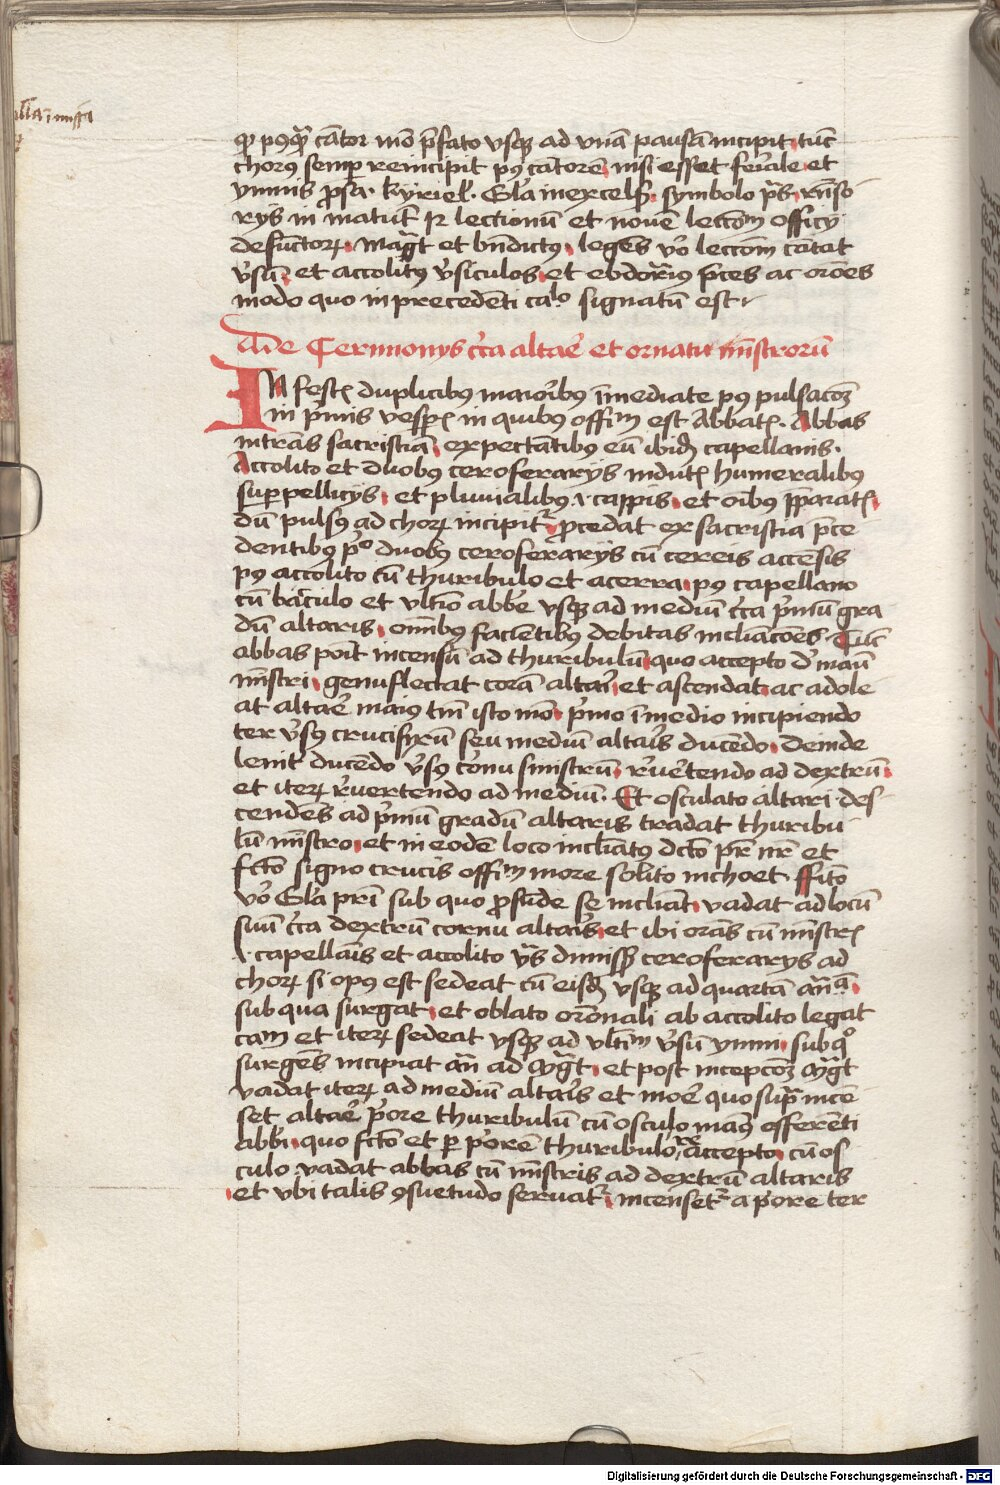 alia in missa
qȝ postqȝ cātor mō p̄fato vsqȝ ad vnā pausā incipit tūc
chorꝰ semp reincipit pꝰ cātorē nisi esset feriale et
ymnis prosa. kyriel. Gl̄a in excelsis. symbolo p̄s. rn̄so
rijs in matut̄ iꝛ lectionū et nouē leccōm officij
defūctorꝝ. magt̄ et bn̄dictꝰ, legēs v̄o leccōm cātat
v̄sū et accolitꝰ v̄siculos et ebdōariꝰ p̄ces ac orōes
modo quo in precedēti calo signatū est
De Cerimonijs circa altare et ornatu mīstrorū
IN festis duplicibꝰ maioribꝰ īmediate pꝰ pulsacōȝ
in p̄mis vesperis in quibꝰ offm̄ est Abbatis. Abbas
intrās sacristiā expectātibꝰ eū ibidē capellanis.
Accolito et duobꝰ ceroferarijs indutis humeralibꝰ
superpellicijs et pluuialibꝰ ⁊ cappis et oībꝰ p̄paratis
dū pulsꝰ ad chorꝝ incipitur procedat ex sacristia p̄ce
dentibꝰ pº duobꝰ ceroferarijs cū cereis accēsis
pꝰ accolito cū thuribulo et acerra, pꝰ capellano
cū bāculo et vltīo abbe vsqȝ ad mediū circa p̄mū gra
dū altaris, omībꝰ faciētibꝰ debitas inclinacōēs. Tūc
abbas poīt incensū ad thuribulū quo accepto de manū
mīstri, genuflectat corā altari et ascendat ac adole
at altare maiꝰ tm̄ isto mō. p̄mo ī medio incipiendo
ter v̄sꝰ crucifixū seu mediū altaris ducēdo. Deinde
leuit̄ ducēdo v̄sꝰ cornu sinistrū reuertendo ad dextrū
et iterꝝ reuertendo ad mediū. Et osculato altari des
cendēs ad p̄mū gradū altaris tradat thuribu
lū mīstro, et in eodē loco inclinatꝰ dcō pr̄ nr̄ et
fcō signo crucis offm̄ more solito inchoet. ffīto
v̄o Gl̄a pr̄i sub quo profūde se inclinēt, vadat ad locū
suū circa dextrū cornu altaris et ibi orās cū mīstris
⁊ capellanis et accolito v̄s dimissis ceroferarijs ad
chorꝝ si opꝰ est sedeat cū eisdē vsqȝ ad quartā anā
sub qua surgat, et oblato orōnali ab accolito legat
cam et iterꝝ sedeat vsqȝ ad vltīm v̄sū ymni, sub qº
surgēs incipiat an̄ ad magt̄, et post incepcōȝ magt̄
vadat iterꝝ ad mediū altaris et more quo supra incē
set altare p̄ore thuribulū cū osculo manꝰ offerēti
abbi, quo fcō et per p̄orē thuribulo accepto cū os
culo vadat abbas cū mīstris ad dextrū altaris
et vbi talis ꝯsuetudo seruatur incensetur a pore ter
Digitalisierung gefördert durch die Deutsche Forschungsgemeinschaft - DFG